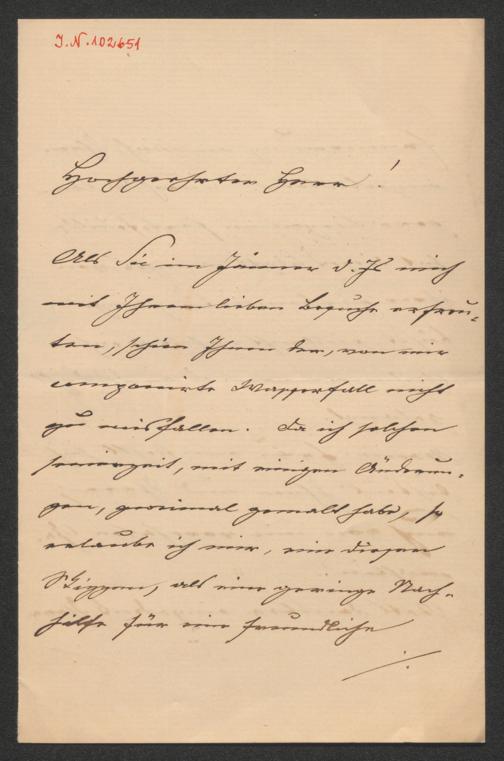 J.N. 102651
Hochgeehrter Herr!
Als Sie im Jänner d. Js mich
mit Ihrem lieben Besuche erfreu-
ten, schien Ihnen der, von mir
componirte Wasserfall nicht
zu misfallen. Da ich solchen
seinerzeit, mit einigen Änderun-
gen, zweimal gemalt habe, so
erlaube ich mir, eine dieser
Skizzen, als eine geringe Nach-
hilfe für eine freundliche
./.